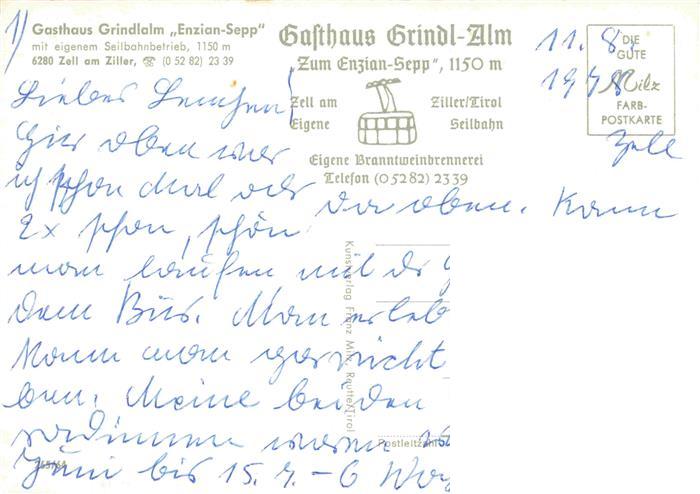 1)
Gasthaus Grindlalm „Enzian-Sepp"
mit eigenem Seilbahnbetrieb, 1150 m
6280 Zell am Ziller, ☎ (0 52 82) 23 39
Gasthaus Grindl-Alm
„Zum Enzian-Sepp", 1150 m
Zell am Ziller/Tirol
Eigene Seilbahn
Eigene Branntweinbrennerei
Telefon (0 52 82) 23 39
DIE
GUTE
Milz
FARB-
POSTKARTE
11. 8.
1978
Zell
Liebes
Hier oben war
ich schon mal oder
2x schon, schön da oben. Kann
man laufen mit
dem Bus. Man
kann man gar nicht
Meine beiden
waren
Juni bis 15. 7. – 6
Kunstverlag Franz Milz Reutte/Tirol
Postleitzahl